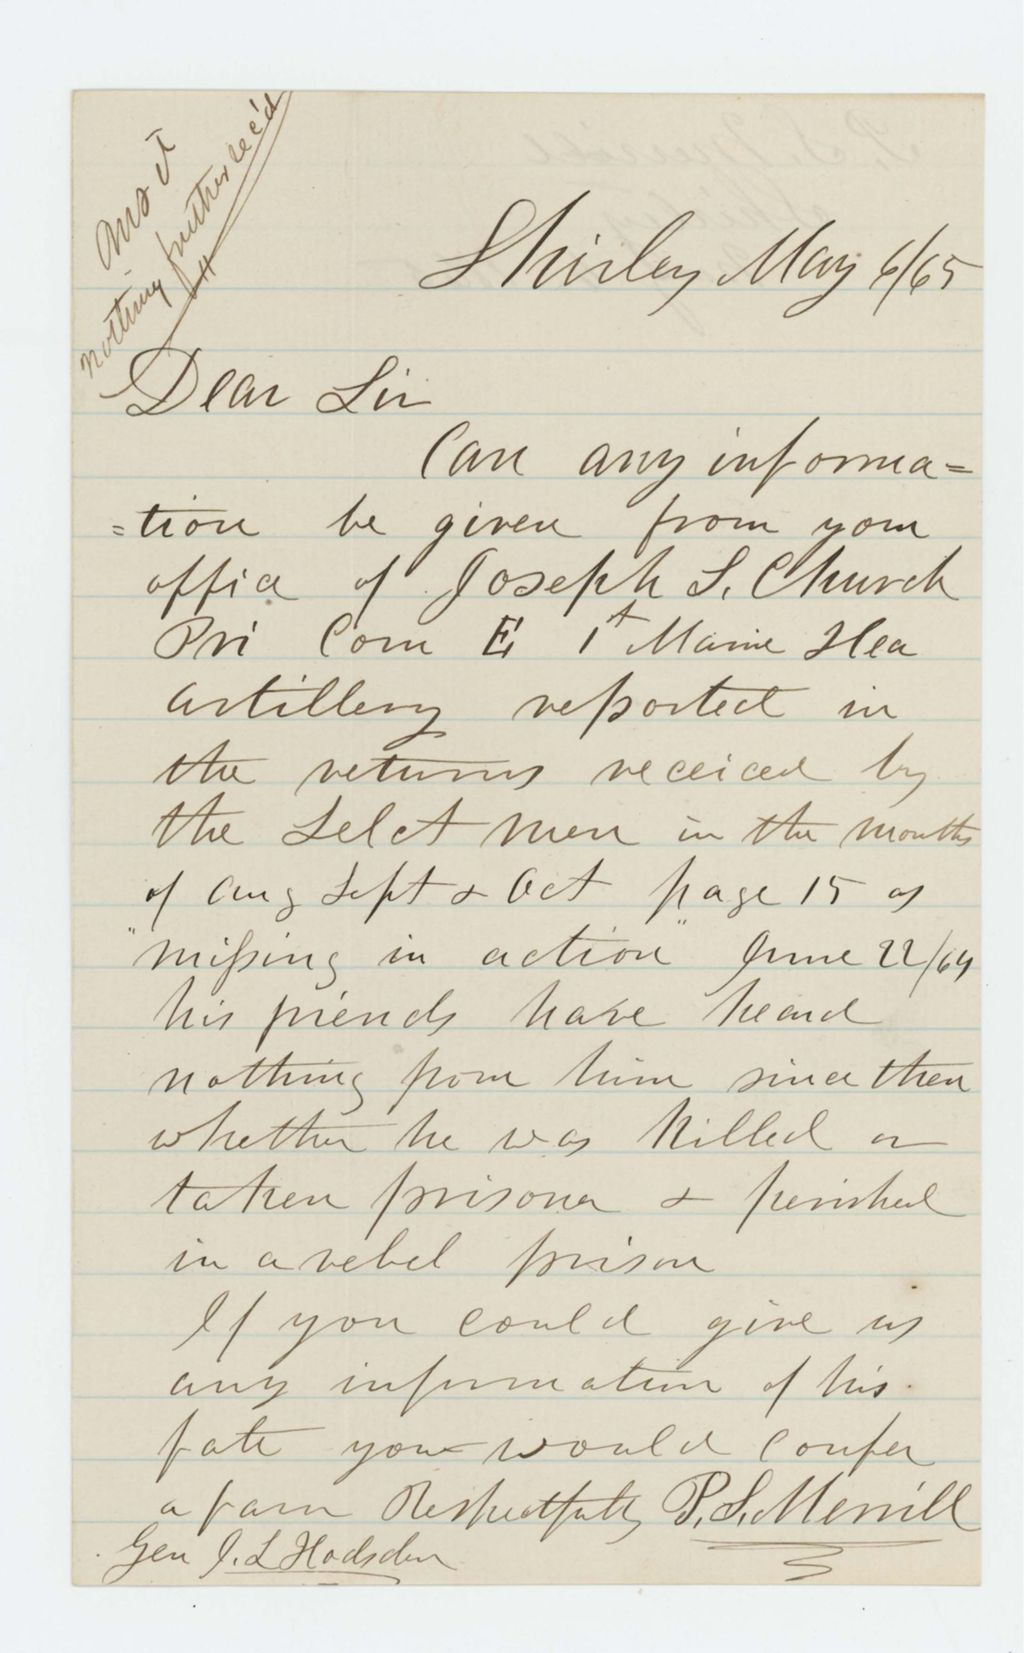 Ans'd
nothing further rec'd
H
Shirley May 6/65
Dear Sir
Can any informa=
=tion be given from your
office of Joseph S. Church
Pri Com E 1st Maine Hea
artillery reported in
the returns receiced by
the Selct men in the months
of Aug Sept & Oct page 15 as
"missing in action" June 22/64
his friends have heard
nothing from him since then
whether he was killed or
taken prisoner & perished
in a rebel prison
If you could give us
any information of his
fate you would confer
a favor Respectfully P. S. Merrill
Gen J. L Hodsdon